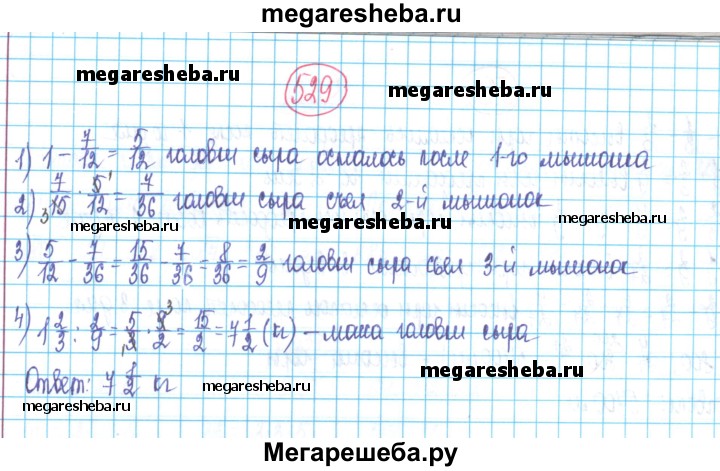 megaresheba.ru
megaresheba.ru
529
megaresheba.ru
1) 1 - 7/12 = 5/12 головки сыра осталось после 1-го мышонка
2) 7/15 · 5/12 = 7/36 головки сыра съел 2-й мышонок
3 1
megaresheba.ru
megaresheba.ru
3) 5/12 - 7/36 = 15/36 - 7/36 = 8/36 = 2/9 головки сыра съел 3-й мышонок
4) 1 2/3 : 2/9 = 5/3 · 9/2 = 15/2 = 7 1/2 (кг) – масса головки сыра
1 3
megaresheba.ru
Ответ: 7 1/2 кг
megaresheba.ru
megaresheba.ru
megaresheba.ru
Мегарешеба.ру